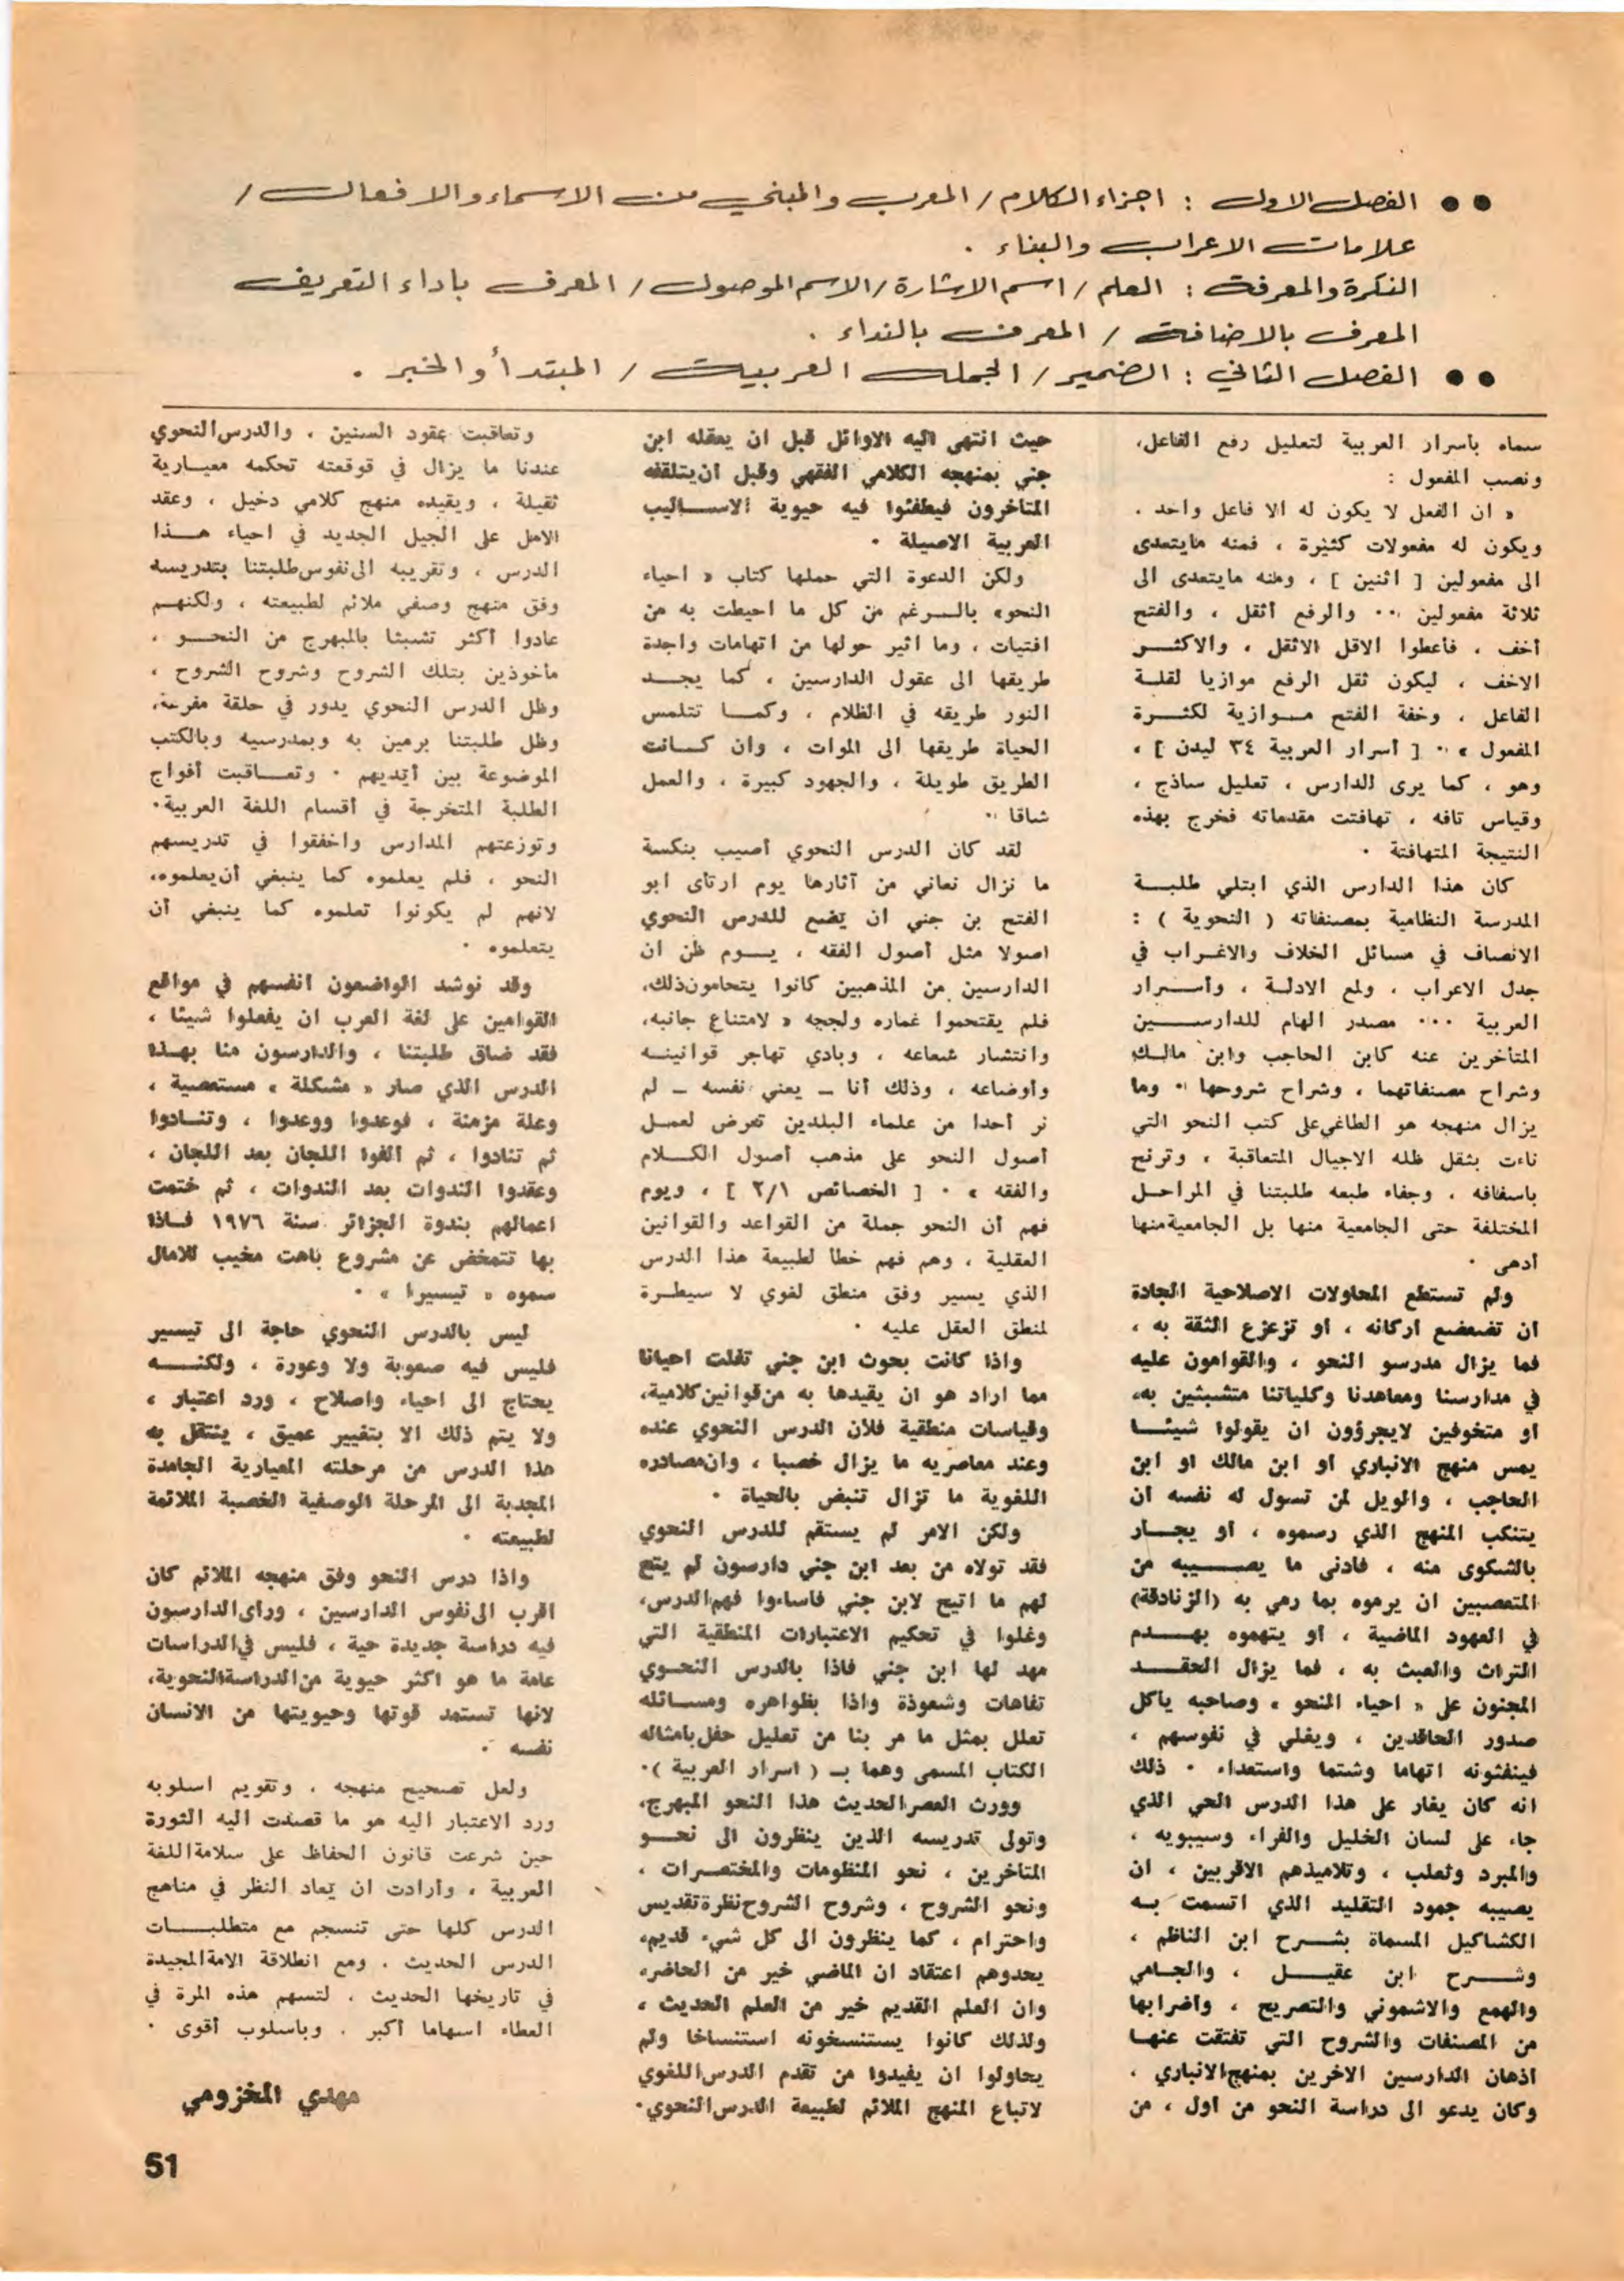 ●● الفصل الاول : اجزاء الكلام / المعرب والمبني من الاسماء والافعال /
علامات الاعراب والبناء .
النكرة والمعرفة : العلم / اسم الاشارة / الاسم الموصول / المعرف باداء التعريف
المعرف بالاضافة / المعرف بالنداء .
●● الفصل الثاني : الضمير / الجملة العربية / المبتدأ والخبر .
سماه بأسرار العربية لتعليل رفع الفاعل،
ونصب المفعول :
« ان الفعل لا يكون له الا فاعل واحد .
ويكون له مفعولات كثيرة ، فمنه مايتعدى
الى مفعولين [ اثنين ] ، ومنه مايتعدى الى
ثلاثة مفعولين ٠٠ والرفع أثقل ، والفتح
أخف ، فأعطوا الاقل الاثقل ، والاكثـــر
الاخف ، ليكون ثقل الرفع موازيا لقلــة
الفاعل ، وخفة الفتح مــوازية لكثــرة
المفعول » ٠ [ أسرار العربية ٣٤ ليدن ] ،
وهو ، كما يرى الدارس ، تعليل ساذج ،
وقياس تافه ، تهافتت مقدماته فخرج بهذه
النتيجة المتهافتة ٠
كان هذا الدارس الذي ابتلي طلبــة
المدرسة النظامية بمصنفاته ( النحوية ) :
الانصاف في مسائل الخلاف والاغـراب في
جدل الاعراب ، ولمع الادلــة ، وأســـرار
العربية ٠٠٠ مصدر الهام للدارســـين
المتأخرين عنه كابن الحاجب وابن مالـك
وشراح مصنفاتهما ، وشراح شروحها ٠ وما
يزال منهجه هو الطاغي على كتب النحو التي
ناءت بثقل ظله الاجيال المتعاقبة ، وترنح
باسفافه ، وجفاء طبعه طلبتنا في المراحــل
المختلفة حتى الجامعية منها بل الجامعية منها
أدهى ٠
ولم تستطع المحاولات الاصلاحية الجادة
ان تضعضع اركانه ، او تزعزع الثقة به ،
فما يزال مدرسو النحو ، والقوامون عليه
في مدارسنا ومعاهدنا وكلياتنا متشبثين به،
او متخوفين لايجرؤون ان يقولوا شيئــا
يمس منهج الانباري او ابن مالك او ابن
الحاجب ، والويل لمن تسول له نفسه ان
يتنكب المنهج الذي رسموه ، او يجــار
بالشكوى منه ، فادنى ما يصـــيبه من
المتعصبين ان يرموه بما رمي به (الزنادقة)
في العهود الماضية ، او يتهموه بهـــدم
التراث والعبث به ، فما يزال الحقـــد
المجنون على « احياء النحو » وصاحبه ياكل
صدور الحاقدين ، ويغلي في نفوسهم ،
فينفثونه اتهاما وشتما واستعداء ٠ ذلك
انه كان يغار على هذا الدرس الحي الذي
جاء على لسان الخليل والفراء وسيبويه ،
والمبرد وثعلب ، وتلاميذهم الاقربين ، ان
يصيبه جمود التقليد الذي اتسمت بــه
الكشاكيل المسماة بشـــرح ابن الناظم ،
وشـــرح ابن عقيـــل ، والجــامي
والهمع والاشموني والتصريح ، واضرابها
من المصنفات والشروح التي تفتقت عنهــا
اذهان الدارسين الاخرين بمنهج الانباري ،
وكان يدعو الى دراسة النحو من أول ، من
حيث انتهى اليه الاوائل قبل ان يعقله ابن
جني بمنهجه الكلامي الفقهي وقبل ان يتلقفه
المتأخرون فيطفئوا فيه حيوية الاســـاليب
العربية الاصيلة ٠
ولكن الدعوة التي حملها كتاب « احياء
النحو» بالــرغم من كل ما احيطت به من
افتيات ، وما اثير حولها من اتهامات واجدة
طريقها الى عقول الدارسين ، كما يجـــد
النور طريقه في الظلام ، وكمــا تتلمس
الحياة طريقها الى الموات ، وان كــانت
الطريق طويلة ، والجهود كبيرة ، والعمل
شاقا ٠
لقد كان الدرس النحوي أصيب بنكسة
ما نزال نعاني من آثارها يوم ارتأى ابو
الفتح بن جني ان يضع للدرس النحوي
اصولا مثل أصول الفقه ، يـــوم ظن ان
الدارسين من المذهبين كانوا يتحامون ذلك،
فلم يقتحموا غماره ولججه « لامتناع جانبه،
وانتشار شعاعه ، وبادي تهاجر قوانينــه
وأوضاعه ، وذلك أنا ــ يعني نفسه ــ لم
نر أحدا من علماء البلدين تعرض لعمــل
أصول النحو على مذهب أصول الكـــلام
والفقه » ٠ [ الخصائص ٢/١ ] ، ويوم
فهم أن النحو جملة من القواعد والقوانين
العقلية ، وهم فهم خطأ لطبيعة هذا الدرس
الذي يسير وفق منطق لغوي لا سيطــرة
لمنطق العقل عليه ٠
واذا كانت بحوث ابن جني تفلت احيانا
مما اراد هو ان يقيدها به من قوانين كلامية،
وقياسات منطقية فلان الدرس النحوي عنده
وعند معاصريه ما يزال خصبا ، وان مصادره
اللغوية ما تزال تنبض بالحياة ٠
ولكن الامر لم يستقم للدرس النحوي
فقد تولاه من بعد ابن جني دارسون لم يتح
لهم ما اتيح لابن جني فاساءوا فهم الدرس،
وغلوا في تحكيم الاعتبارات المنطقية التي
مهد لها ابن جني فاذا بالدرس النحــوي
تفاهات وشعوذة واذا بظواهره ومســائله
تعلل بمثل ما مر بنا من تعليل حفل بامثاله
الكتاب المسمى وهما بـ ( اسرار العربية )٠
وورث العصر الحديث هذا النحو المبهرج،
وتولى تدريسه الذين ينظرون الى نحــو
المتأخرين ، نحو المنظومات والمختصــرات ،
ونحو الشروح ، وشروح الشروح نظرة تقديس
واحترام ، كما ينظرون الى كل شيء قديم،
يحدوهم اعتقاد ان الماضي خير من الحاضر،
وان العلم القديم خير من العلم الحديث ،
ولذلك كانوا يستنسخونه استنساخا ولم
يحاولوا ان يفيدوا من تقدم الدرس اللغوي
لاتباع المنهج الملائم لطبيعة الدرس النحوي٠
وتعاقبت عقود السنين ، والدرس النحوي
عندنا ما يزال في قوقعته تحكمه معيــارية
ثقيلة ، ويقيده منهج كلامي دخيل ، وعقد
الامل على الجيل الجديد في احياء هـــذا
الدرس ، وتقريبه الى نفوس طلبتنا بتدريسه
وفق منهج وصفي ملائم لطبيعته ، ولكنهــم
عادوا أكثر تشبثا بالمبهرج من النحـــو ،
مأخوذين بتلك الشروح وشروح الشروح ،
وظل الدرس النحوي يدور في حلقة مفرغة،
وظل طلبتنا برمين به وبمدرسيه وبالكتب
الموضوعة بين أيديهم ٠ وتعــاقبت أفواج
الطلبة المتخرجة في أقسام اللغة العربية٠
وتوزعتهم المدارس واخفقوا في تدريسهم
النحو ، فلم يعلموه كما ينبغي أن يعلموه،
لانهم لم يكونوا تعلموه كما ينبغي أن
يتعلموه ٠
وقد نوشد الواضعون انفسهم في مواقع
القوامين على لغة العرب ان يفعلوا شيئا ،
فقد ضاق طلبتنا ، والدارسون منا بهــذا
الدرس الذي صار « مشكلة » مستعصية ،
وعلة مزمنة ، فوعدوا ووعدوا ، وتنــادوا
ثم تنادوا ، ثم الفوا اللجان بعد اللجان ،
وعقدوا الندوات بعد الندوات ، ثم ختمت
اعمالهم بندوة الجزائر سنة ١٩٧٦ فــاذا
بها تتمخض عن مشروع باهت مخيب للامال
سموه « تيسيرا » ٠
ليس بالدرس النحوي حاجة الى تيسير
فليس فيه صعوبة ولا وعورة ، ولكنـــه
يحتاج الى احياء واصلاح ، ورد اعتبار ،
ولا يتم ذلك الا بتغيير عميق ، ينتقل به
هذا الدرس من مرحلته المعيارية الجامدة
المجدبة الى المرحلة الوصفية الخصبة الملائمة
لطبيعته ٠
واذا درس النحو وفق منهجه الملائم كان
اقرب الى نفوس الدارسين ، ورأى الدارسون
فيه دراسة جديدة حية ، فليس في الدراسات
عامة ما هو اكثر حيوية من الدراسة النحوية،
لانها تستمد قوتها وحيويتها من الانسان
نفسه ٠
ولعل تصحيح منهجه ، وتقويم اسلوبه
ورد الاعتبار اليه هو ما قصدت اليه الثورة
حين شرعت قانون الحفاظ على سلامة اللغة
العربية ، وأرادت ان يعاد النظر في مناهج
الدرس كلها حتى تنسجم مع متطلبـــات
الدرس الحديث ، ومع انطلاقة الامة المجيدة
في تاريخها الحديث ، لتسهم هذه المرة في
العطاء اسهاما أكبر ، وباسلوب أقوى ٠
مهدي المخزومي
51